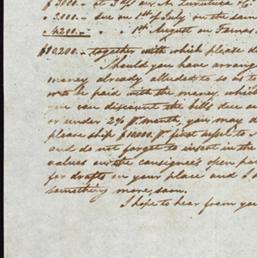 $ 3000.- at 3 d/s on A.
" 3,000 - due on 1st of July on the same
" 4200.- " " 1st August on
$ 10,200 - together with which please d
Should you have arran
money already alluded to so as to
to be paid with the money which
you can discount the bills due on
or under 2% pr month, you may d
please ship $10000 pr first vessel to
and do not forget to insert in the
values on the consignee's open pa
for drafts on your place and I d
something more, soon.
I hope to hear from you